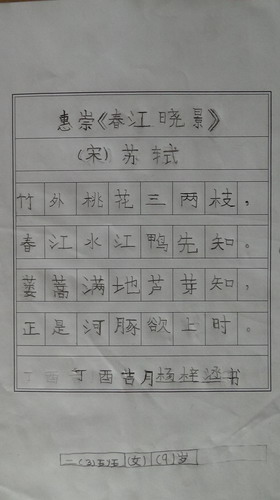 惠崇《春江晓景》
(宋) 苏轼
竹外桃花三两枝，
春江水江鸭先知。
蒌蒿满地芦芽知，
正是河豚欲上时。
丁酉丁酉吉月杨梓涵书
二(3)班(女)(9)岁